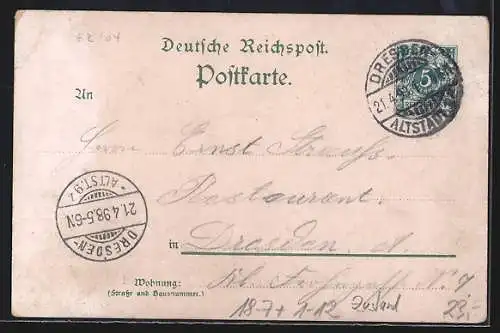 EZ/04
Deutsche Reichspost.
Postkarte.
DRESDEN
5
21.4.
ALTSTADT
An
Herrn Ernst Strauss.
Restaurant.
* ALTST. 9 *
21.4.98.5-6N
DRESDEN-
in Dresden. A.
Wohnung:
(Straße und Hausnummer.)
Kl.
N° 7
18-7+ 1-12 Zustand
23,-